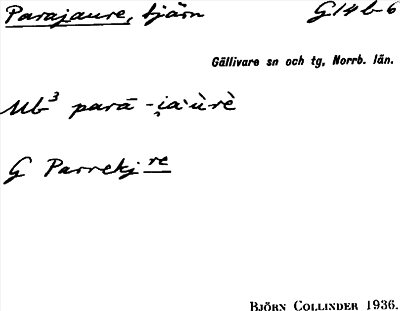 Parajaure, tjärn G14b-6
Gällivare sn och tg, Norrb. län.
Ub³ parā -i̯a·ùrè
G Parrekj re
BJÖRN COLLINDER 1936.